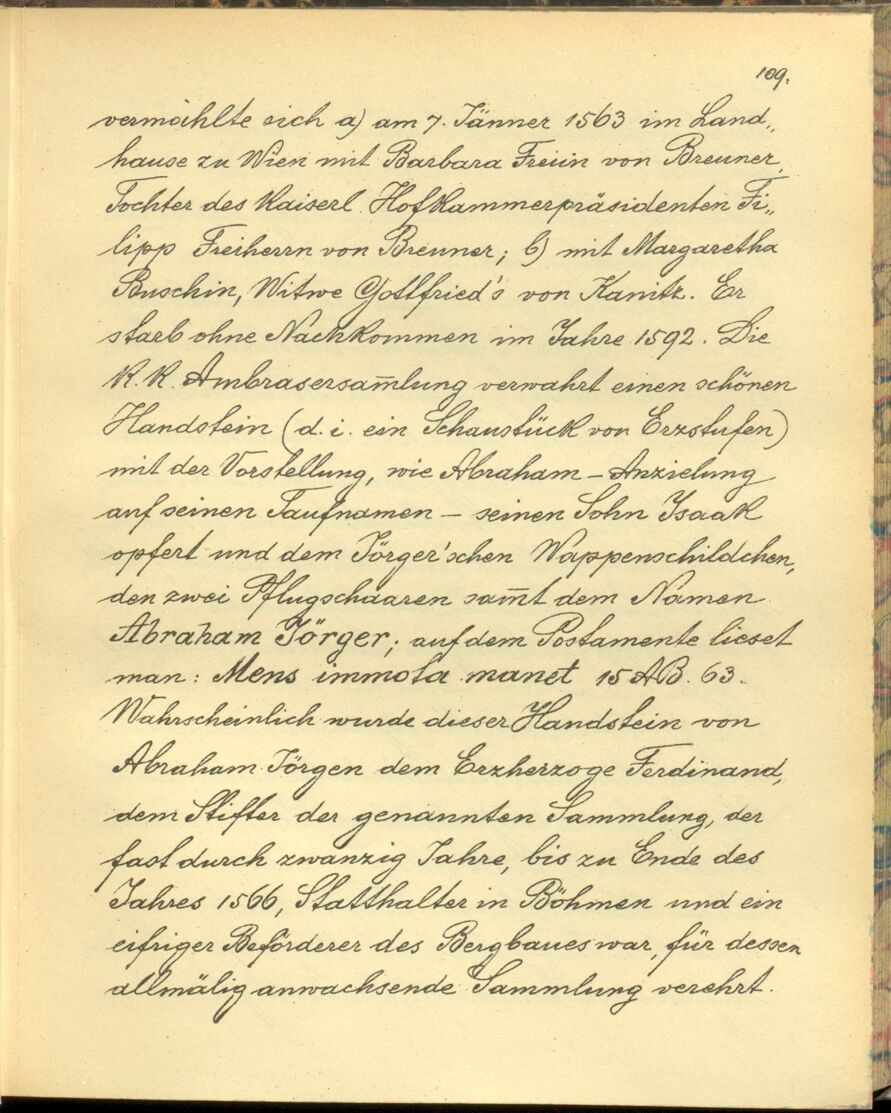 109.
vermählte sich a) am 7. Jänner 1563 im Land„
hause zu Wien mit Barbara Freiin von Breuner,
Tochter des Kaiserl. Hofkammerpräsidenten Fi„
lipp Freiherrn von Breuner; b) mit Margaretha
Buschin, Witwe Gottfried's von Kanitz. Er
starb ohne Nachkommen im Jahre 1592. Die
K. K. Ambrasersam̅lung verwahrt einen schönen
Handstein (d. i. ein Schaustück von Erzstufen)
mit der Vorstellung, wie Abraham – Anzielung
auf seinen Taufnamen – seinen Sohn Isaak
opfert und dem Jörger'schen Wappenschildchen,
den zwei Pflugschaaren sam̅t dem Namen
Abraham Jörger; auf dem Postamente lieset
man: Mens immota manet 15 AB. 63.
Wahrscheinlich wurde dieser Handstein von
Abraham Jörgen dem Erzherzoge Ferdinand,
dem Stifter der genannten Sammlung, der
fast durch zwanzig Jahre, bis zu Ende des
Jahres 1566, Statthalter in Böhmen und ein
eifriger Beförderer des Bergbaues war, für dessen
allmälig anwachsende Sammlung verehrt.